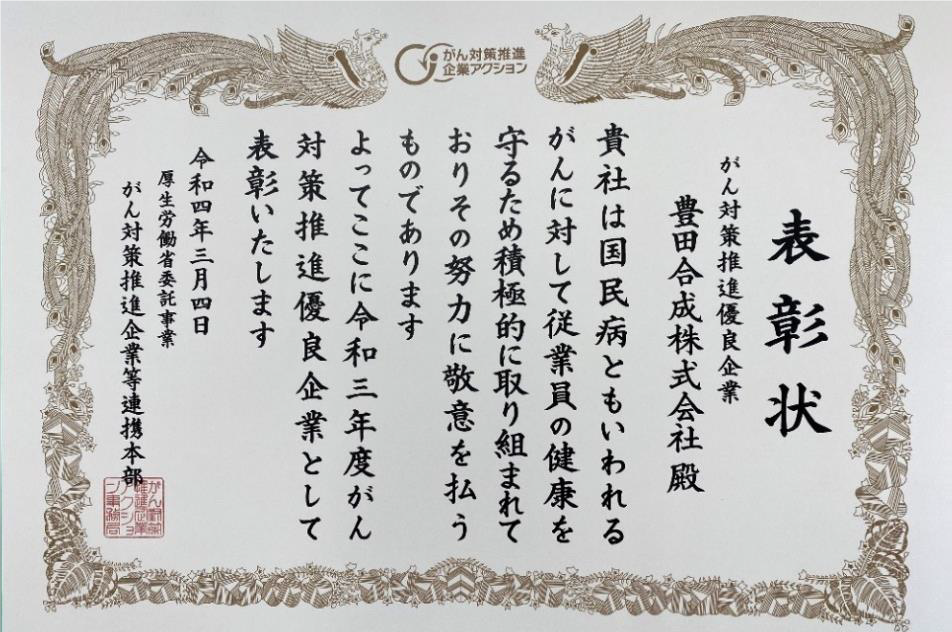 がん対策推進
企業アクション
表彰状
がん対策推進優良企業
豊田合成株式会社 殿
貴社は国民病ともいわれる
がんに対して従業員の健康を
守るため積極的に取り組まれて
おりその努力に敬意を払う
ものであります
よってここに令和三年度がん
対策推進優良企業として
表彰いたします
令和四年三月四日
厚生労働省委託事業
がん対策推進企業等連携本部
がん対策
推進企業
アクショ
ン事務局